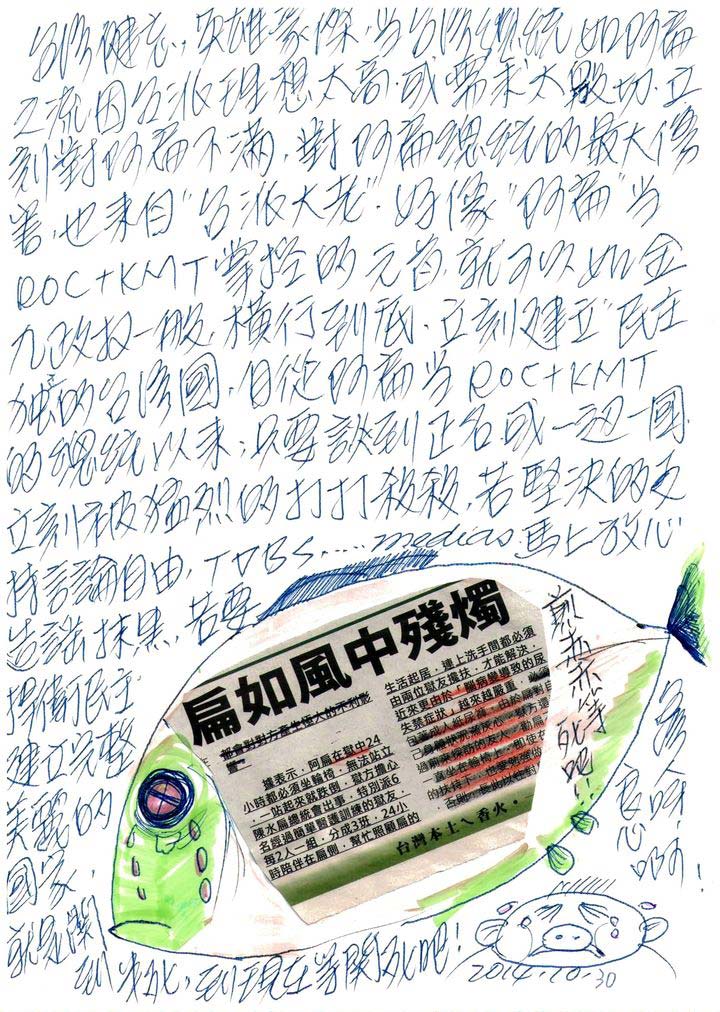 台灣健忘，英雄豪傑，當台灣總統如阿扁
之流因台派理想太高，或需求太殷切，立
刻對阿扁不滿，對阿扁總統的最大傷
害，也來自"台派大老"，好像"阿扁"當
ROC+KMT掌控的元首，就可以如金
政权一般，橫行到底，立刻建立"民主
的台灣國，自從阿扁當ROC+KMT
的總統以來；只要談到正名，或一邊一國，
立刻被猛烈的打打殺殺，若堅決的支
持言論自由，TVBS.....medias馬上放心
造謠抹黑，若要
捍衛民主
建立完整
美麗的
國家，
就是關
到死，到現在等關死吧！
扁如風中殘燭
都會對對方產生極大的不利影
響。
據表示，阿扁在獄中24
小時都必須坐輪椅，無法站立
，一站起來就跌倒，獄方擔心
陳水扁總統會出事，特別派6
名經過簡單照護訓練的獄友，
每2人一組，分成3班，24小
時陪伴在扁側，幫忙照顧扁的
生活起居，連上洗手間都必須
由兩位獄友攙扶，才能解決，
近來更由於腦病變導致的尿
失禁症狀，越來越嚴重，
台灣本土ㄟ香火。
等死吧！！
良心啊！
2014.10.30